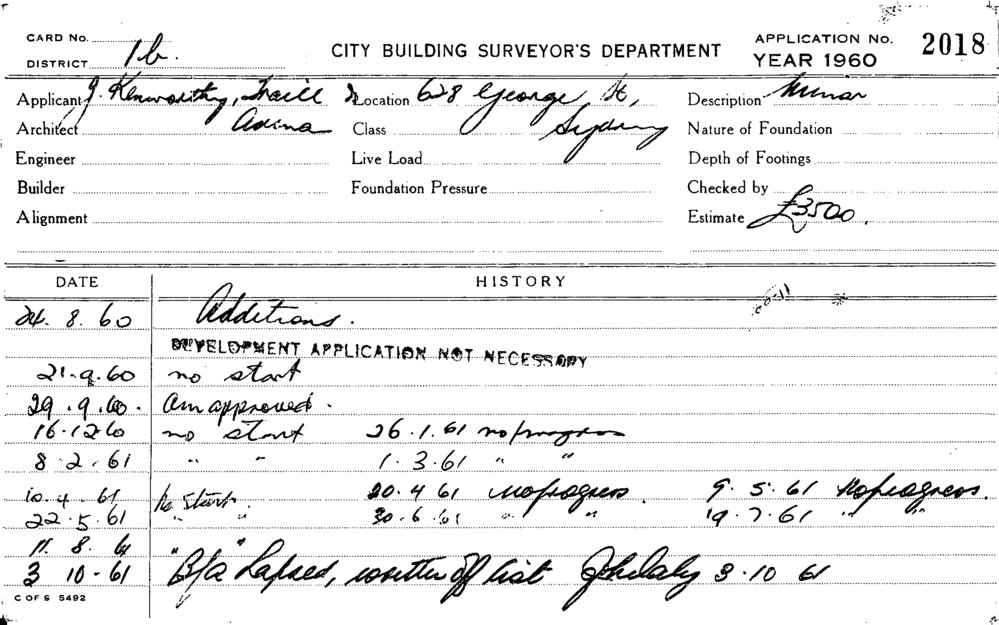 CARD No.
DISTRICT 1b.
CITY BUILDING SURVEYOR'S DEPARTMENT
APPLICATION No. 2018
YEAR 1960
Applicant J. Kenworthy, Traill &
Location 628 George St,
Description Minor
Architect
Class Sydney
Nature of Foundation
Engineer
Live Load
Depth of Footings
Builder
Foundation Pressure
Checked by
Alignment
Estimate £3500.
DATE HISTORY
24. 8. 60 Additions.
DEVELOPMENT APPLICATION NOT NECESSARY
21.9.60 no start
29.9.60. Am approved.
16.12.60 no start 26.1.61 no progress
8.2.61 " " 1.3.61 " "
10.4.61 No start. 20.4.61 No progress. 9.5.61 No progress.
22.5.61 " " 30.6.61 " " 19.7.61 " "
11.8.61 " "
3 10-61 B/a Lapsed, written off list 3.10 61
C OF S 5492